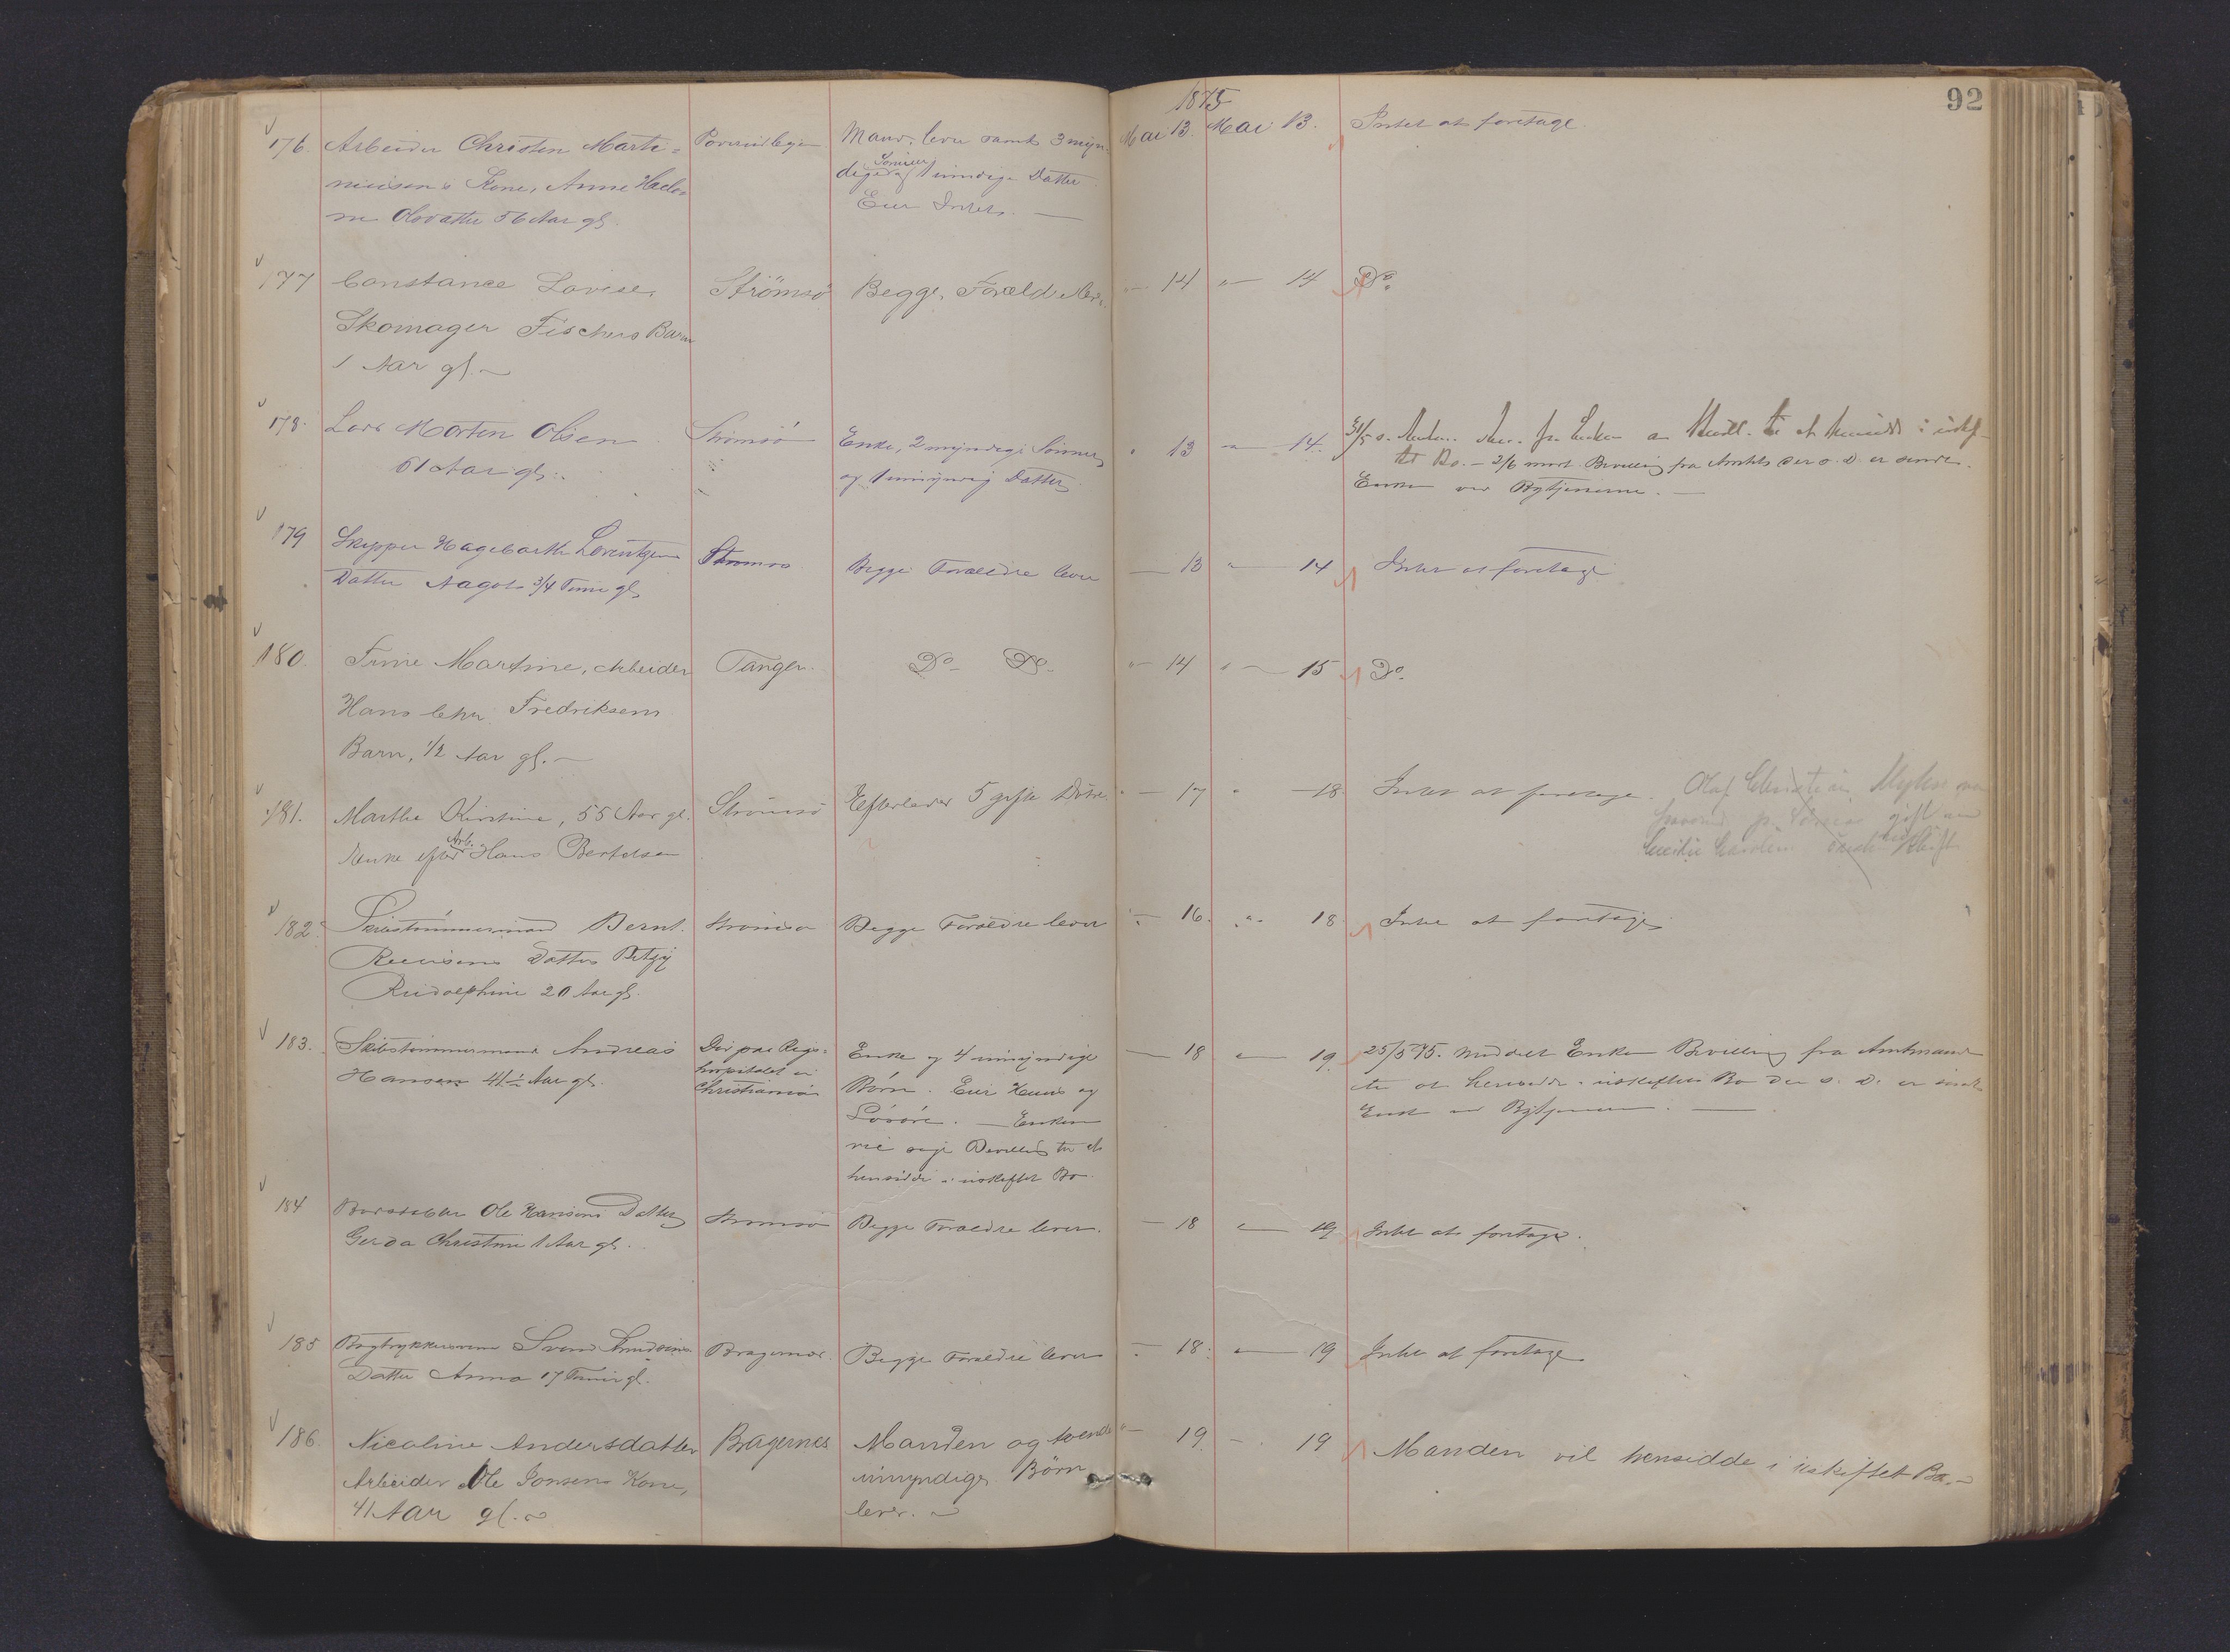 92
1875
176. Arbeider Christen Marti=
niusens Kone, Anne
Olsdatter 56 Aar gl.
Mand lever samt 3 myn-
dige Sønner og 1 umyndig Datter
Eier Intet. —
Mai 13. Mai 13. Intet at foretage.
177 Constance Lovise, Strömsö Begge Forældre lever. " 14 " 14 Do.
Skomager Fischers Barn
1 Aar gl. —
178. Lars Morten Olsen Strømsö Enke, 2 myndige Sønner " 13 — 14.
61 Aar gl. og 1 umyndig Datter.
Bo. — 2/6 modt. Bevilling fra Amtet der s. D. er sendt
Enken ved Bytjeneren. —
179 Skipper Hagebarth Lorentzens Strømsø Begge Forældre lever — 13 " 14 Intet at foretage
Datter Aagot 3/4 Time gl.
180. Trine Martine, Arbeider Tangen. Do. Do. " 14 " — 15 Do.
Hans Chr. Fredriksens
Barn, 1/2 Aar gl. —
181. Marthe Kirstine, 55 Aar gl. Strömsö Efterlader 5 gifte Døtre. " — 17 " — 18. Intet at foretage.
Enke efter Arb. Hans Bertelsen
Olaf Christian
gift
182. Skibstømmermand Bernt Strömsø Begge Forældre lever — 16. " 18. Intet at foretage
Datter Betzy
Rudolphine 20 Aar gl.
183. Skibstømmermand Andreas
Hansen 41 1/2 Aar gl.
Død paa Rigs=
hospitalet i
Christiania
Enke og 4 umyndige
Børn. Eier Huus og
Løsøre. — Enken
vil søge Bevilling til at
hensidde i uskiftet Bo.
— 18 " 19. 25/5 75. Enken Bevilling fra Amtmanden
til at hensidde i uskiftet Bo der s. D. er sendt
Enken ved Bytjeneren. —
184 Ole Hansens Datter Strømsø Begge Forældre lever. — 18 " 19 Intet at foretage.
Gerda Christine 1 Aar gl.
185 Bogtrykkersvend Svend Knudsens Bragernæs. Begge Forældre lever — 18. " 19 Intet at foretage
Datter Anna 17 Timer gl.
186. Nicoline Andersdatter Bragernes Manden og tvende " 19. — 19 Manden vil hensidde i uskiftet Bo. —
Arbeider Ole Jonsens Kone, umyndige Börn
41 Aar gl. — lever. —